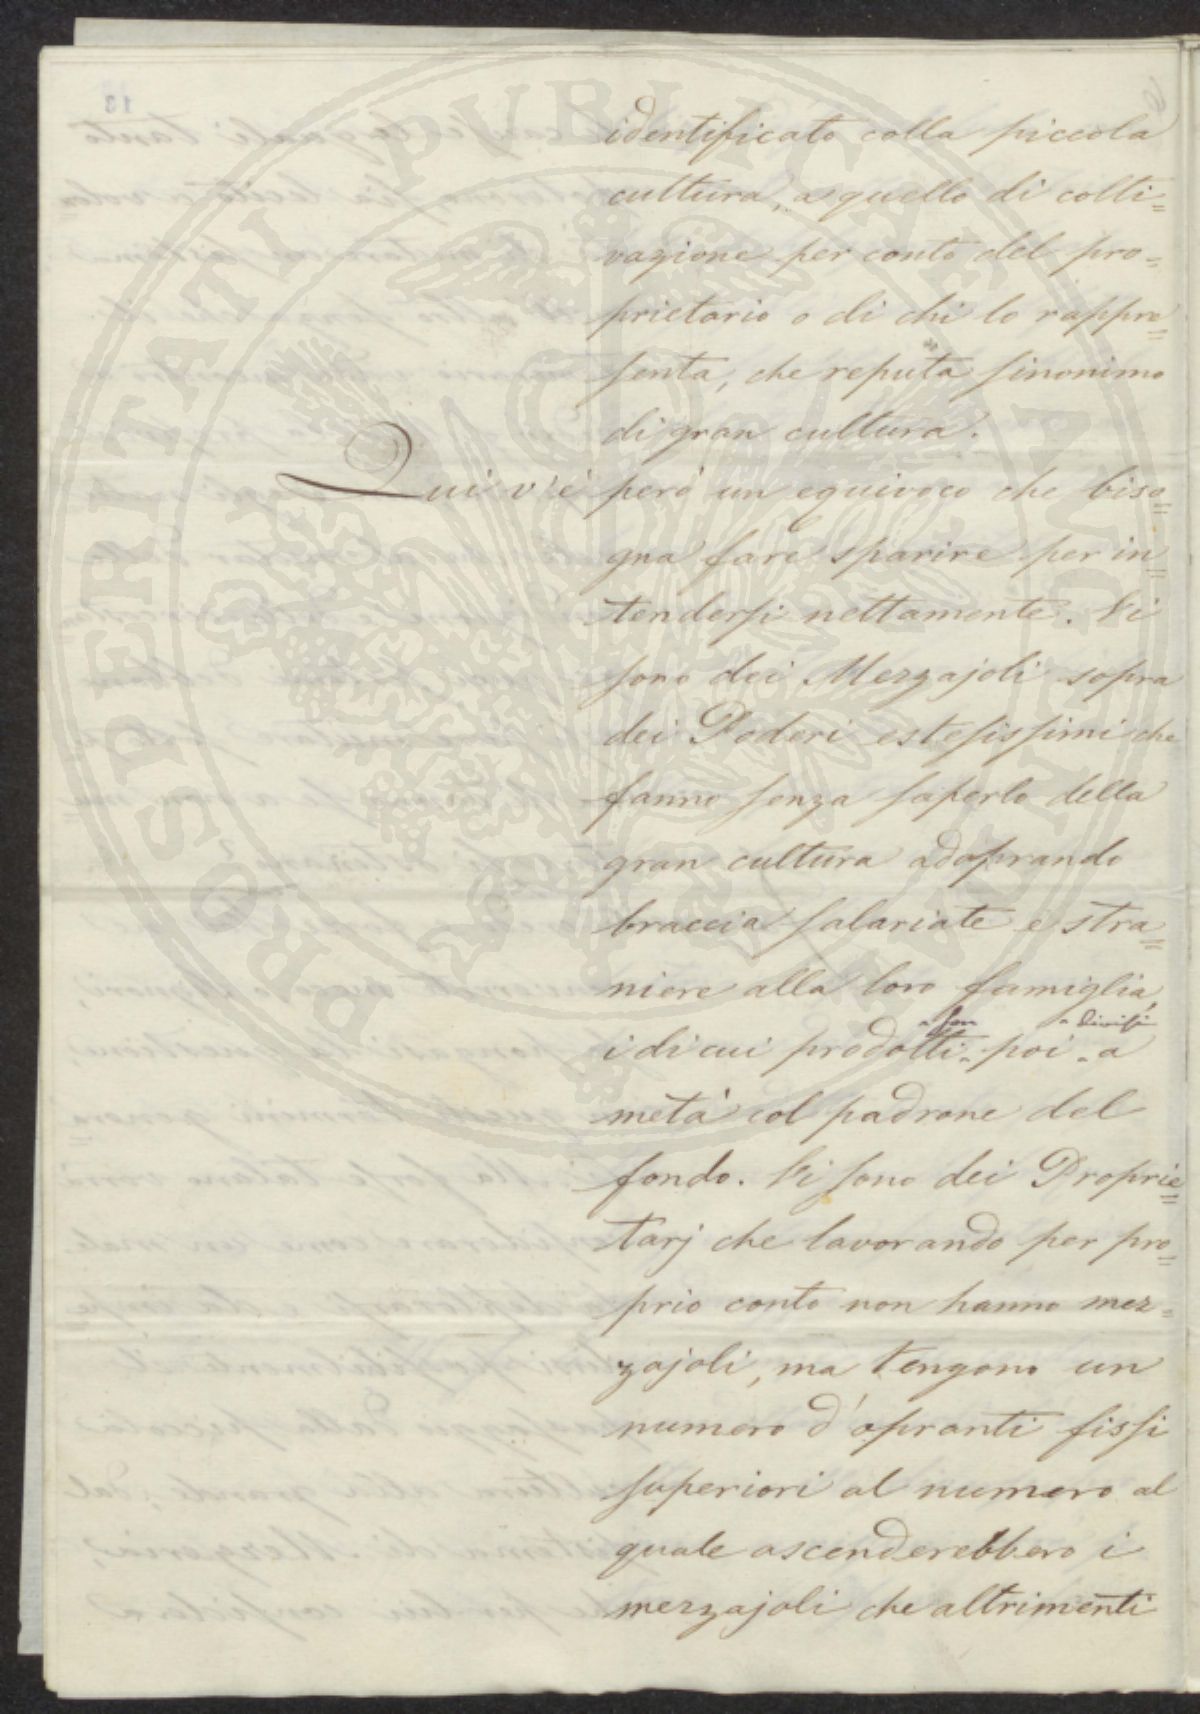 identificato colla piccola
cultura, a quello di colti=
vazione per conto del pro=
prietario o di chi lo rappre=
senta, che reputa sinonimo
di gran cultura.
Qui v'è però un equivoco che biso=
gna fare sparire per in=
tendersi nettamente. Vi
sono dei Mezzajoli sopra
dei Poderi estesissimi che
fanno senza saperlo della
gran cultura adoprando
braccia salariate e stra=
niere alla loro famiglia,
son divisi
i di cui prodotti poi a
metà col padrone del
fondo. Vi sono dei Proprie=
tarj che lavorando per pro=
prio conto non hanno mez=
zajoli, ma tengono un
numero d'opranti fissi
superiori al numero al
quale ascenderebbero i
mezzajoli che altrimenti
PROSPERITATI PUBLICAE AUGENDAE